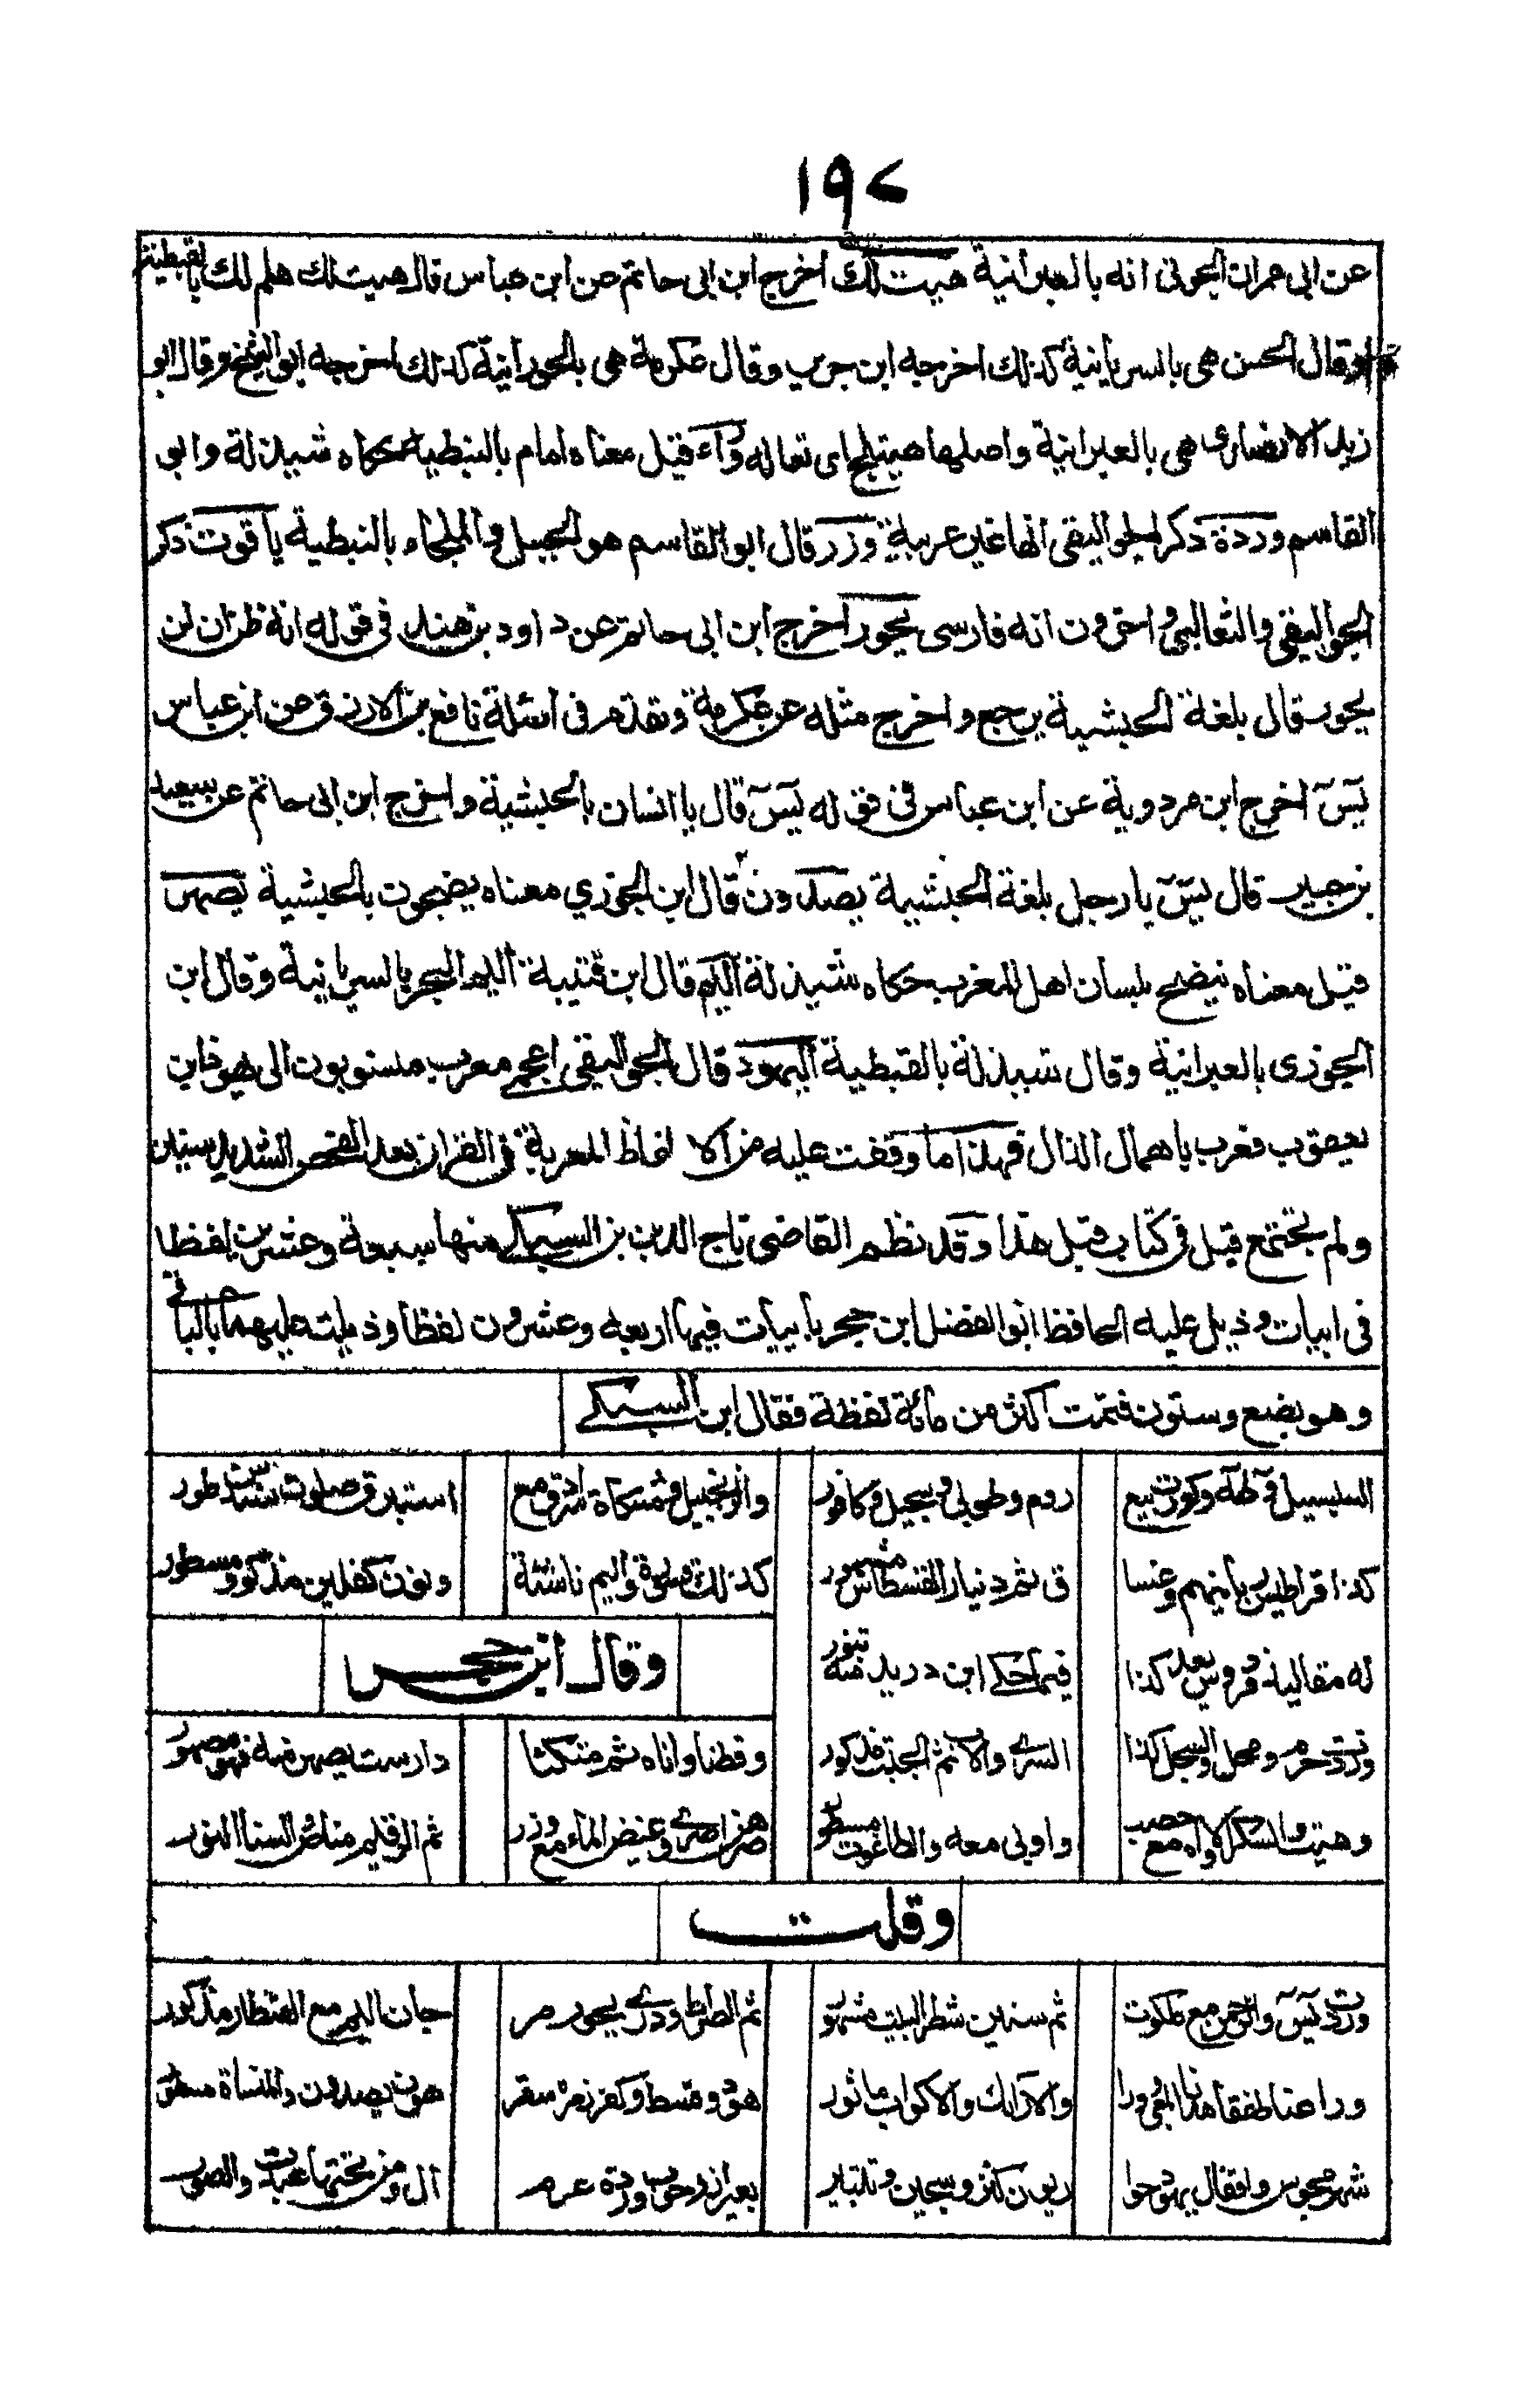 ١٩٧
عن ابي عمران الجوني انه بالعبرانية هيت لك اخرج ابن ابي حاتم عن ابن عباس قال هيت لك هلم لك بالقبطية
وقال الحسن هي بالسريانية كذلك اخرجه ابن جرير وقال عكرمة هي بالحورانية كذلك اخرجه ابو الشيخ وقال ابو
زيد الانصاري هي بالعبرانية واصلها هيتلج اي تعاله وراء قيل معناه امام بالنبطية حكاه شيذلة وابو
القاسم وردة ذكر الجواليقي انها غير عربية وزر قال ابو القاسم هو الجبل والملجاء بالنبطية ياقوت ذكر
الجواليقي والثعالبي واخرون انه فارسي يحور اخرج ابن ابي حاتم عن داود بن هند في قوله انه ظن ان لن
يحور قال بلغة الحبشية يرجع واخرج مثله عن عكرمة وتقدم في اسئلة نافع بن الازرق عن ابن عباس
يٰسٓ اخرج ابن مردوية عن ابن عباس في قوله يٰسٓ قال يا انسان بالحبشية واخرج ابن ابي حاتم عن سعيد
بن جبير قال يٰسٓ يا رجل بلغة الحبشية يصدون قال ابن الجوزي معناه يضجون بالحبشية يصهر
قيل معناه ينضج بلسان اهل المغرب حكاه شيذلة اليم قال ابن قتيبة اليم البحر بالسريانية وقال ابن
الجوزي بالعبرانية وقال شيذلة بالقبطية اليهود قال الجواليقي اعجمي معرب منسوبون الى يهوذا بن
يعقوب فعرب باهمال الذال فهذا ما وقفت عليه من الالفاظ المعربة في القران بعد الفحص الشديد سنين
ولم تجتمع قبل في كتاب قبل هذا وقد نظم القاضي تاج الدين بن السبكي منها سبعة وعشرين لفظا
في ابيات وذيل عليه الحافظ ابو الفضل ابن حجر بابيات فيها اربعة وعشرون لفظا وذيلت عليهما بالباقي
وهو بضع وستون فتمت اكثر من مائة لفظة فقال ابن السبكي
السلسبيل وطه وكورت بيع روم وطوبى وسجيل وكافور والزنجبيل ومشكاة سرادق مع استبرق صلوات سندس طور
كذا قراطيس ربانيهم وغساق ثم دينار القسطاس مشهور كذلك قسورة واليم ناشئة ويؤت كفلين مذكور ومسطور
له مقاليد فردوس يعد كذا فيما حكى ابن دريد منه تنور
وقال ابن حجر
وزدت حرم ومهل والسجل كذا السري والاب ثم الجبت مذكور وقطنا واناه ثم متكئا دارست يصهر منه فهو مصهور
وهيت والسكر الاواه مع حصب واوبي معه والطاغوت مسطور صرهن اصري وغيض الماء مع وزر ثم الرقيم مناص والسنا النور
وقلت
وزدت يٰسٓ والرحمن مع ملكوت ثم سينين شطر البيت مشهور ثم الصراط ودري يحور مر جان اليم مع القنطار مذكور
وراعنا طفقا هدنا ابلعي ورا والارائك والاكواب ماثور هود وقسط وكفر زمره سقر هون يصدون والمنساة مسطور
شهر مجوس واقفال يهود حوا ريون كنز وسجين وتتبير بعير ازر حوب وردة عرم ال ومن تحتها عبدت والصور